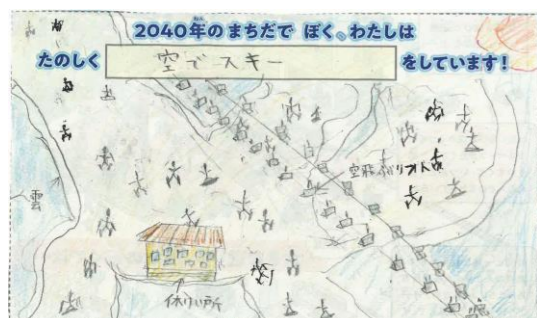 2040年のまちだで ぼく、わたしは
たのしく 空でスキー をしています！
雲
休けい所